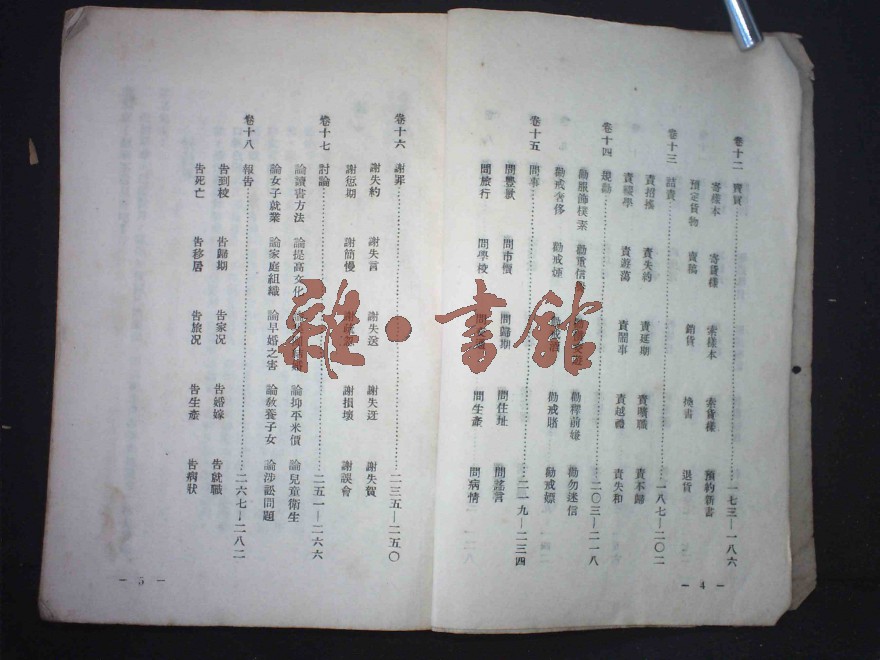 卷十二 賣買………一七三—一八六
寄樣本 寄貨樣 索樣本 索貨樣 預約新書
預定貨物 賣稿 銷貨 換書 退貨
卷十三 詰責………一八七—二〇二
責招搖 責失約 責延期 責曠職 責不歸
責輟學 責遊蕩 責鬧事 責越禮 責失和
卷十四 規勸………二〇三—二一八
勸服飾樸素 勸重信 勸釋前嫌 勸勿迷信
勸戒奢侈 勸戒 勸戒 勸戒賭 勸戒嫖
卷十五 問事………二一九—二三四
問豐歉 問市價 問歸期 問住址 問謠言
問旅行 問學校 問 問生產 問病情
— 4 —
卷十六 謝罪………二三五—二五〇
謝失約 謝失言 謝失送 謝失迓 謝失賀
謝愆期 謝簡慢 謝 謝損壞 謝誤會
卷十七 討論………二五一—二六六
論讀書方法 論提高文化 論抑平米價 論兒童衛生
論女子就業 論家庭組織 論早婚之害 論敎養子女 論涉訟問題
卷十八 報告………二六七—二八二
告到校 告歸期 告家况 告婚嫁 告就職
告死亡 告移居 告旅况 告生產 告病狀
— 5 —
雜·書館